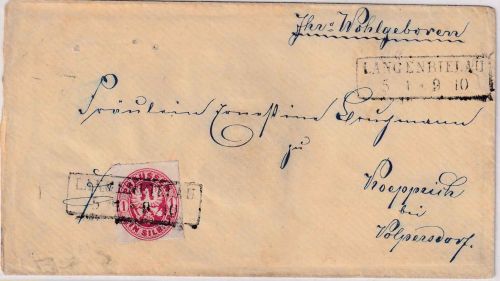 Ihro Wohlgeboren
LANGENBIELAU
5 1 * 9 10
Fräulein Ernestine
zu
Koepprich
bei
Volpersdorf.
LANGENBIELAU
EIN SILB